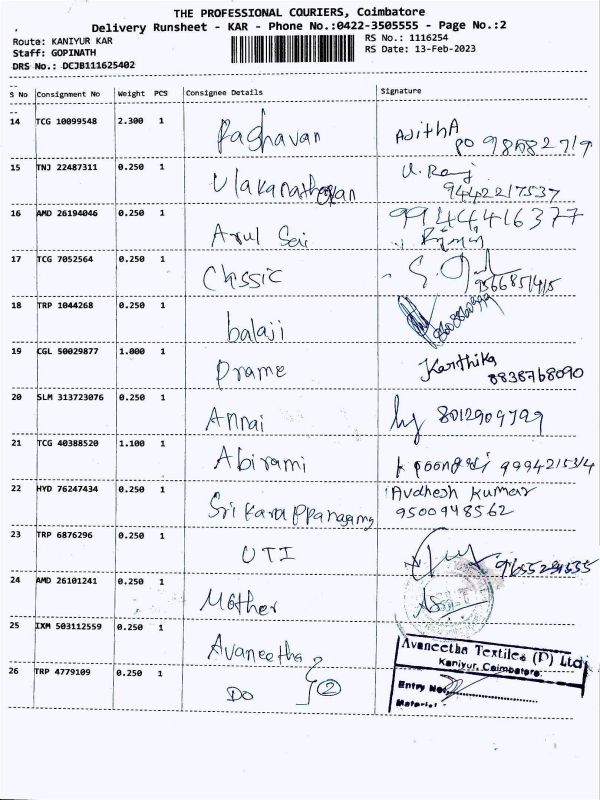 THE PROFESSIONAL COURIERS, Coimbatore
Delivery Runsheet - KAR - Phone No.:0422-3505555 - Page No.:2
Route: KANIYUR KAR
RS No.: 1116254
Staff: GOPINATH
RS Date: 13-Feb-2023
DRS No.: DCJB111625402
S No Consignment No Weight PCS Consignee Details Signature
14 TCG 10099548 2.300 1 Raghavan AdithA
15 TNJ 22487311 0.250 1 U. Raj
9442217537
16 AMD 26194046 0.250 1 Arul Sai 99444416377
17 TCG 7052564 0.250 1 Classic
18 TRP 1044268 0.250 1 balaji
19 CGL 50029877 1.000 1 Prame Karthika
8838768090
20 SLM 313723076 0.250 1 Annai 8012909799
21 TCG 40388520 1.100 1 Abirami
22 HYD 76247434 0.250 1 Avdhesh Kumar
9500948562
23 TRP 6876296 0.250 1 UTI
24 AMD 26101241 0.250 1 Mother
25 IXM 503112559 0.250 1 Avaneetha
Avaneetha Textiles (P) Ltd
Kaniyur, Coimbatore.
26 TRP 4779109 0.250 1 Do 2
Entry No.
Material